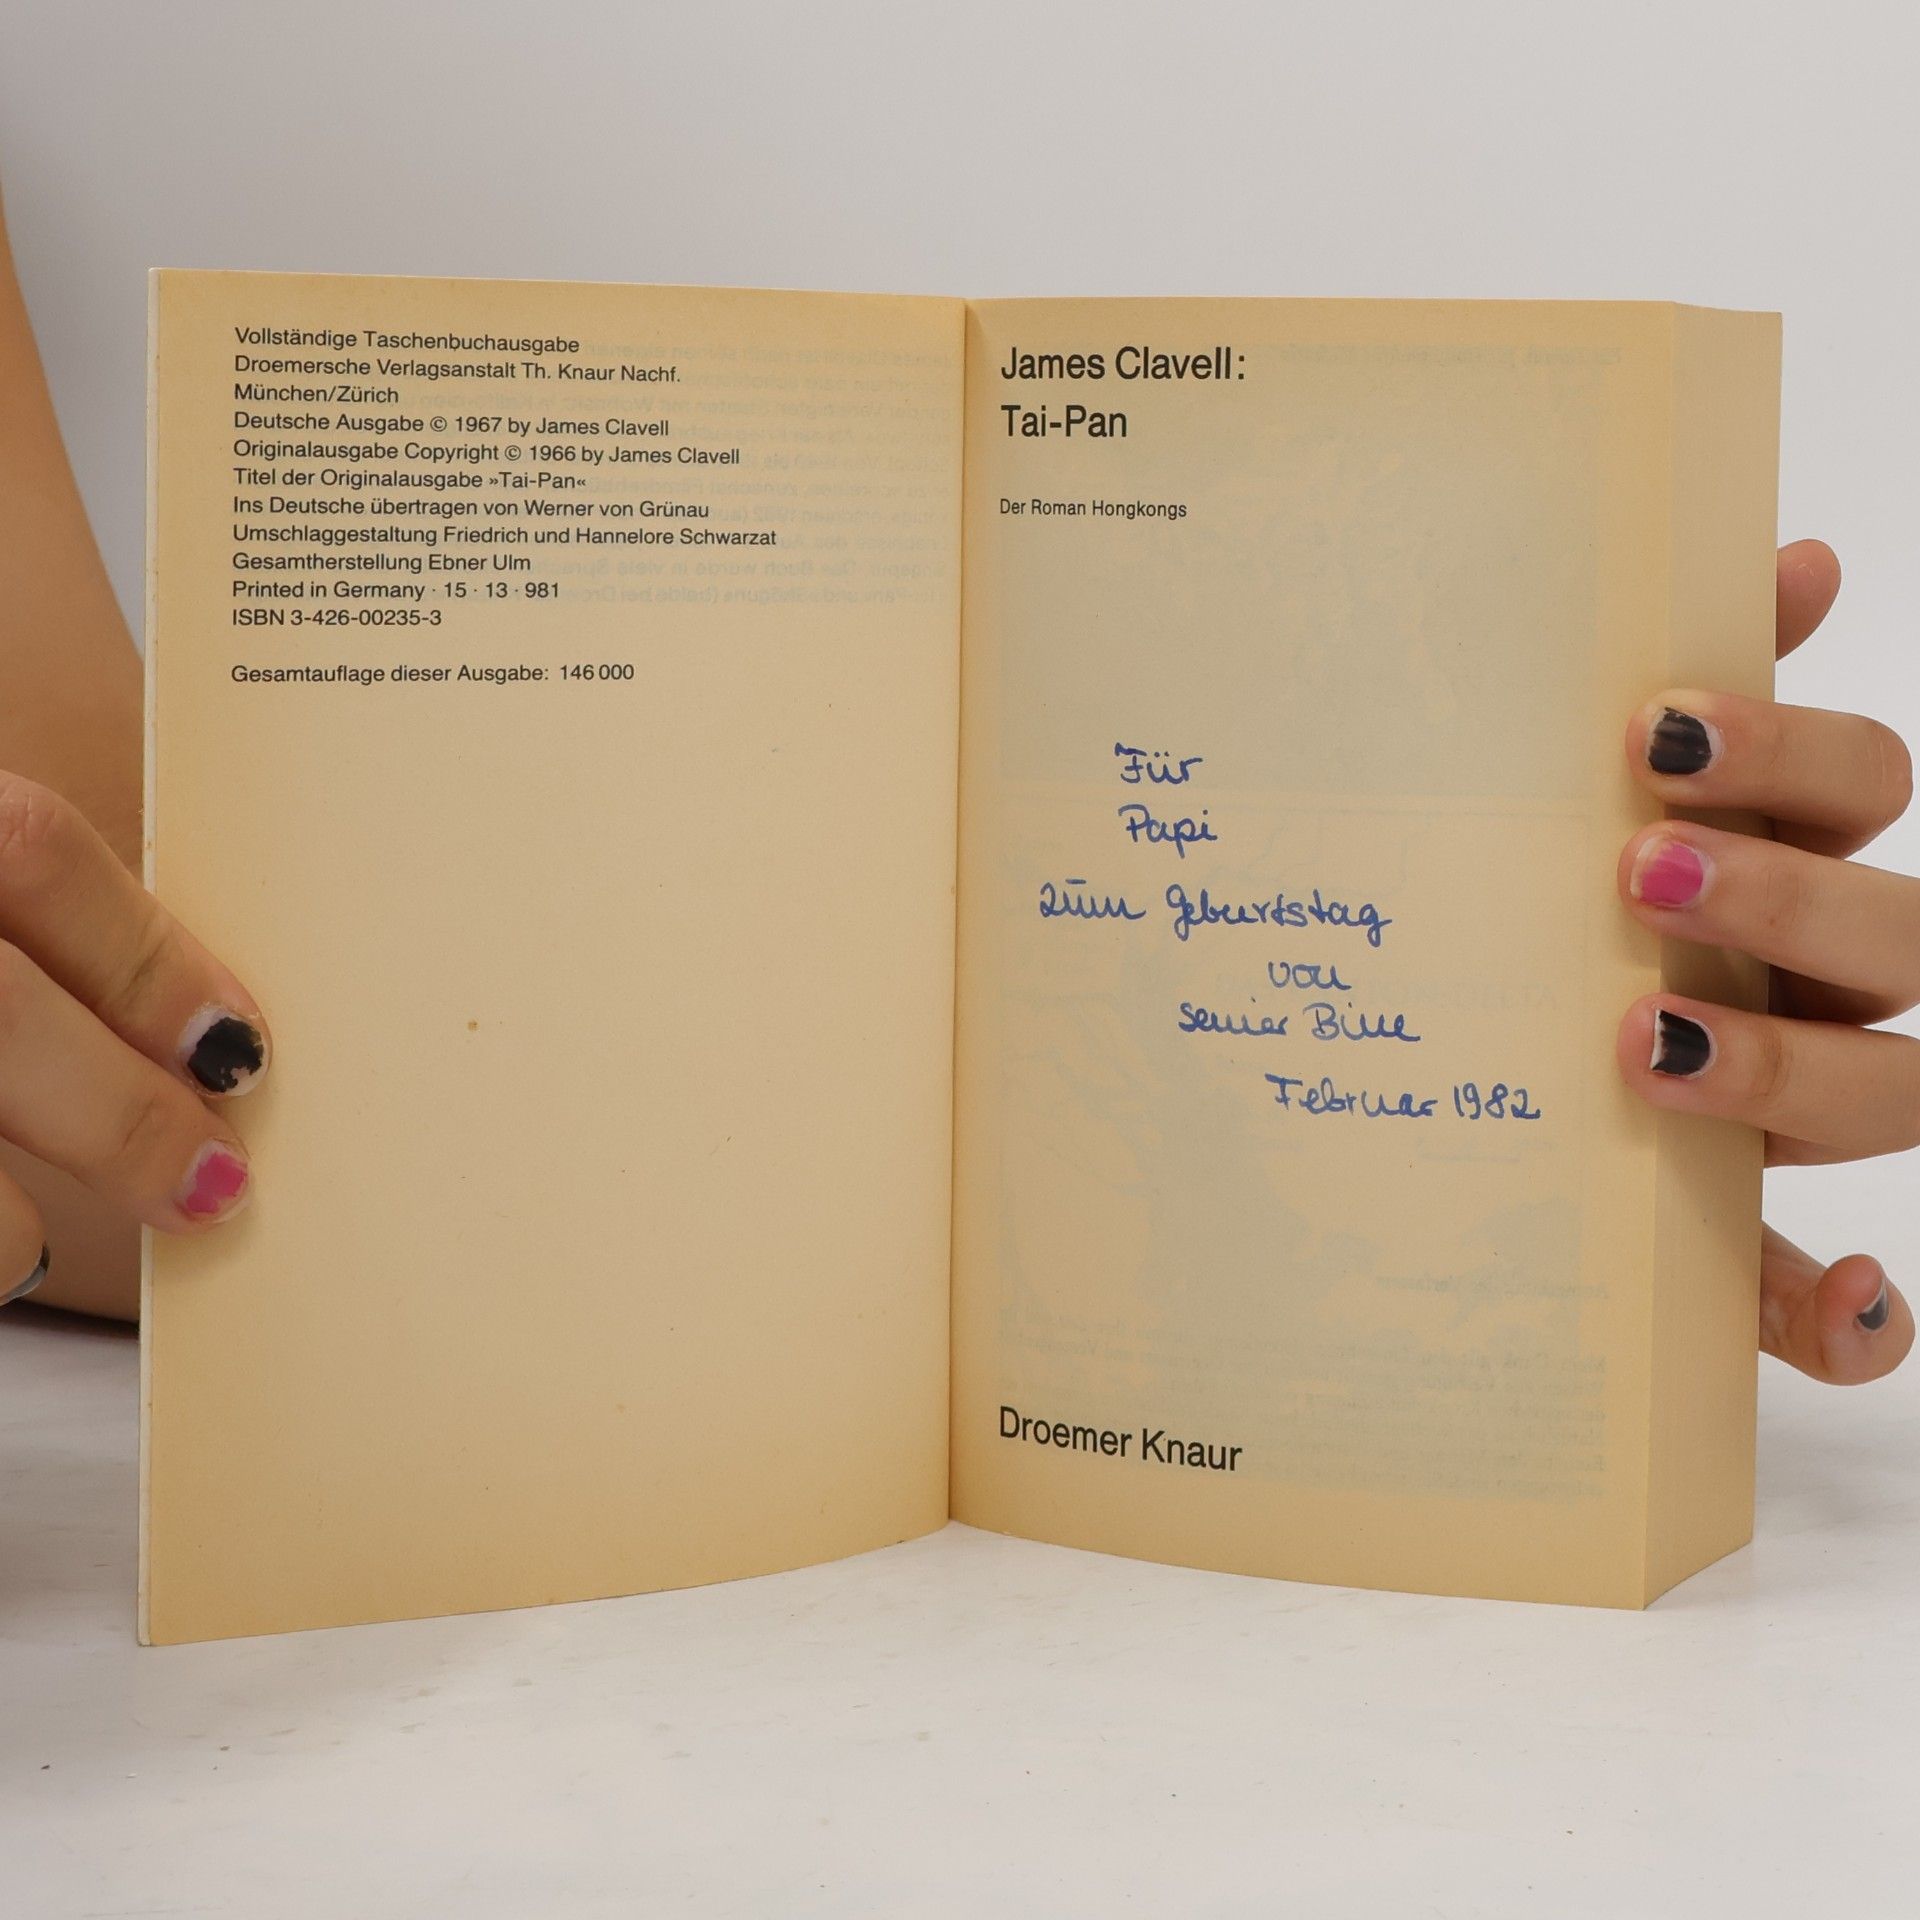 Vollständige Taschenbuchausgabe
Droemersche Verlagsanstalt Th. Knaur Nachf.
München/Zürich
Deutsche Ausgabe © 1967 by James Clavell
Originalausgabe Copyright © 1966 by James Clavell
Titel der Originalausgabe »Tai-Pan«
Ins Deutsche übertragen von Werner von Grünau
Umschlaggestaltung Friedrich und Hannelore Schwarzat
Gesamtherstellung Ebner Ulm
Printed in Germany · 15 · 13 · 981
ISBN 3-426-00235-3
Gesamtauflage dieser Ausgabe: 146 000
James Clavell:
Tai-Pan
Der Roman Hongkongs
Für
Papi
zum Geburtstag
von
seiner Bine
Februar 1982
Droemer Knaur